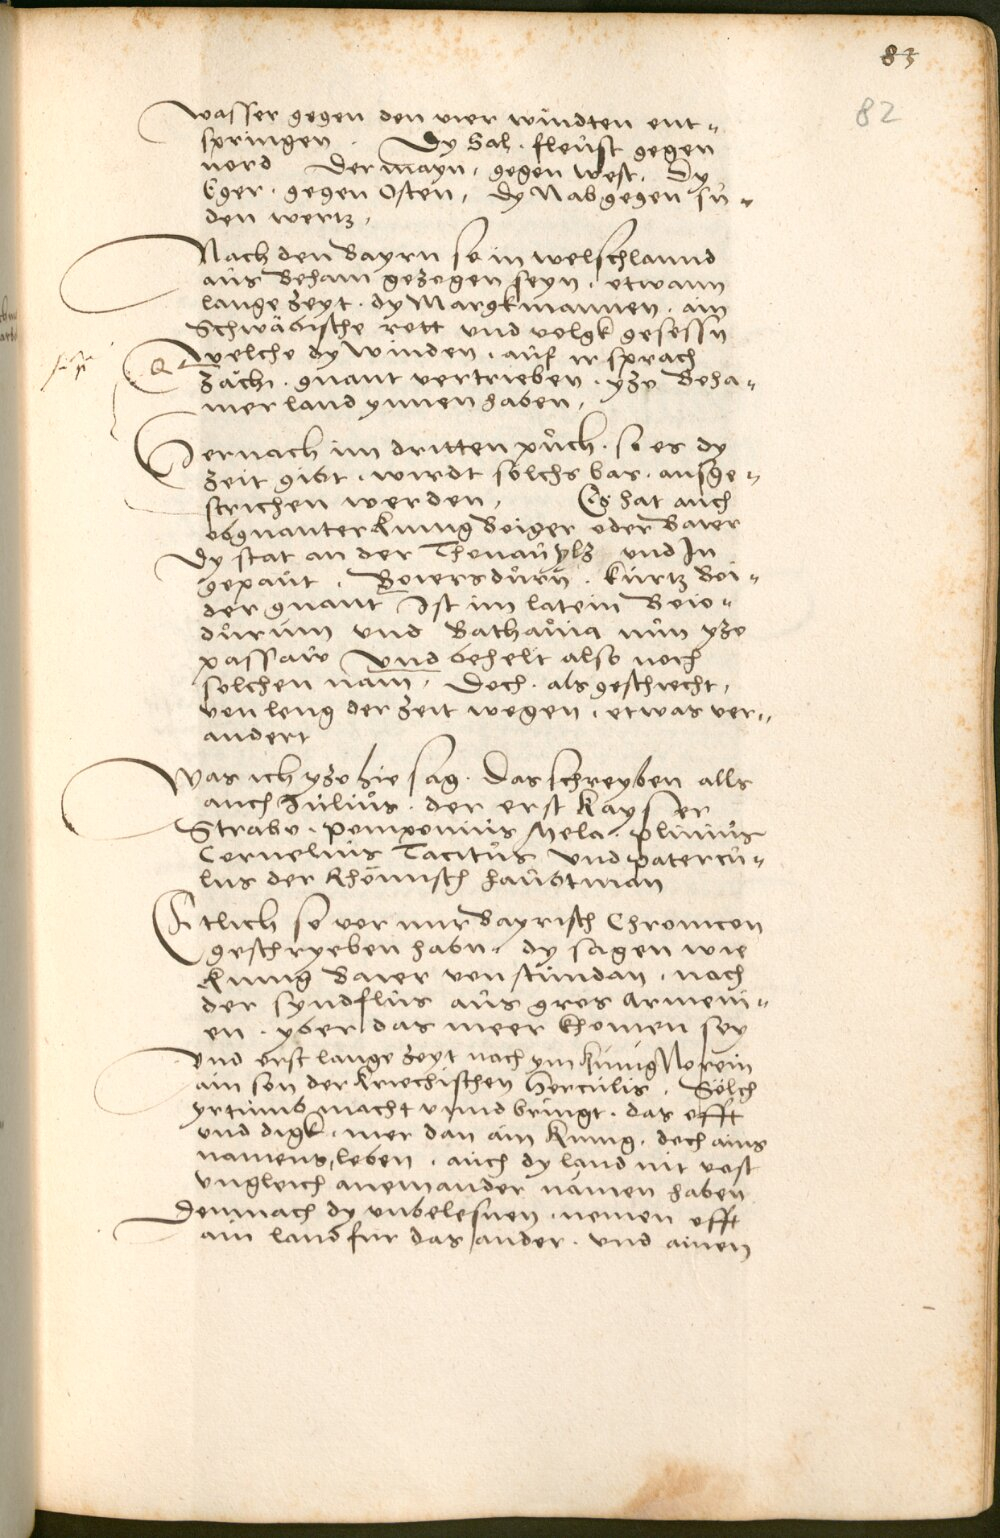 83
82
wasser gegen den vier windten ent„
springen . Dy Sal . fleust gegen
nord Der mayn , gegen west . Dy
Eger . gegen Osten , Dy Nab gegen sü„
den wertz ,
Nach den Bayrn so in welschlannd
aus Beham gezogen seyn , etwann
lange zeyt . dy Margkmannen . ain
Schwäbische rott und volgk gesessn
welche dy winden . auf ir sprach
zäch . gnant vertrieben . yzo Beha„
mer land ynnen haben ,
Hernach im dritten puch . so es dy
zeit gibt . wirdt solchs bas . ausge„
strichen werden , Es hat auch
obgnanter kunig Boiger oder Baier
Dy stat an der Thonau ylz und In
gepaut . Boiersdurn . kurtz Boi„
der gnant Ist im latein Boio„
durum und Bathauia nun yzo
passaw und behelt also noch
solchen nam , Doch . als geschecht ,
von leng der zeit wegen . etwas ver„
andert
Was ich yzo hie sag . das schreyben alls
auch Julius . der erst kayser
Strabo . pomponius Mela . plinius
Cornelius Tacitus und patercu„
lus der Rhömisch haubtman
Etlich so vor mir Bayrisch Chronicon
geschryeben habn . dy sagen wie
kunig Baier von stundan . nach
der syndflus aus gros Armeni„
en . yber das meer khomen sey
und erst lange zeyt nach ym kunig Norein
ain son der kriechischen Herculis . Sölch
yrtumb macht unnd bringt . das offt
und digk . mer dan ain kunig . doch ains
namens leben . auch dy land nit vast
ungleich aneinander namen haben
Demnach dy unbelesnen . nemen offt
ain land fur das ander . und ainen